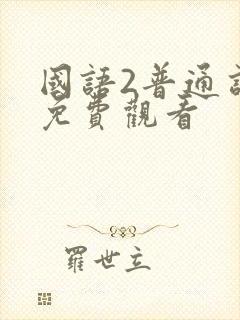 國語2普通
免費觀看
羅世立